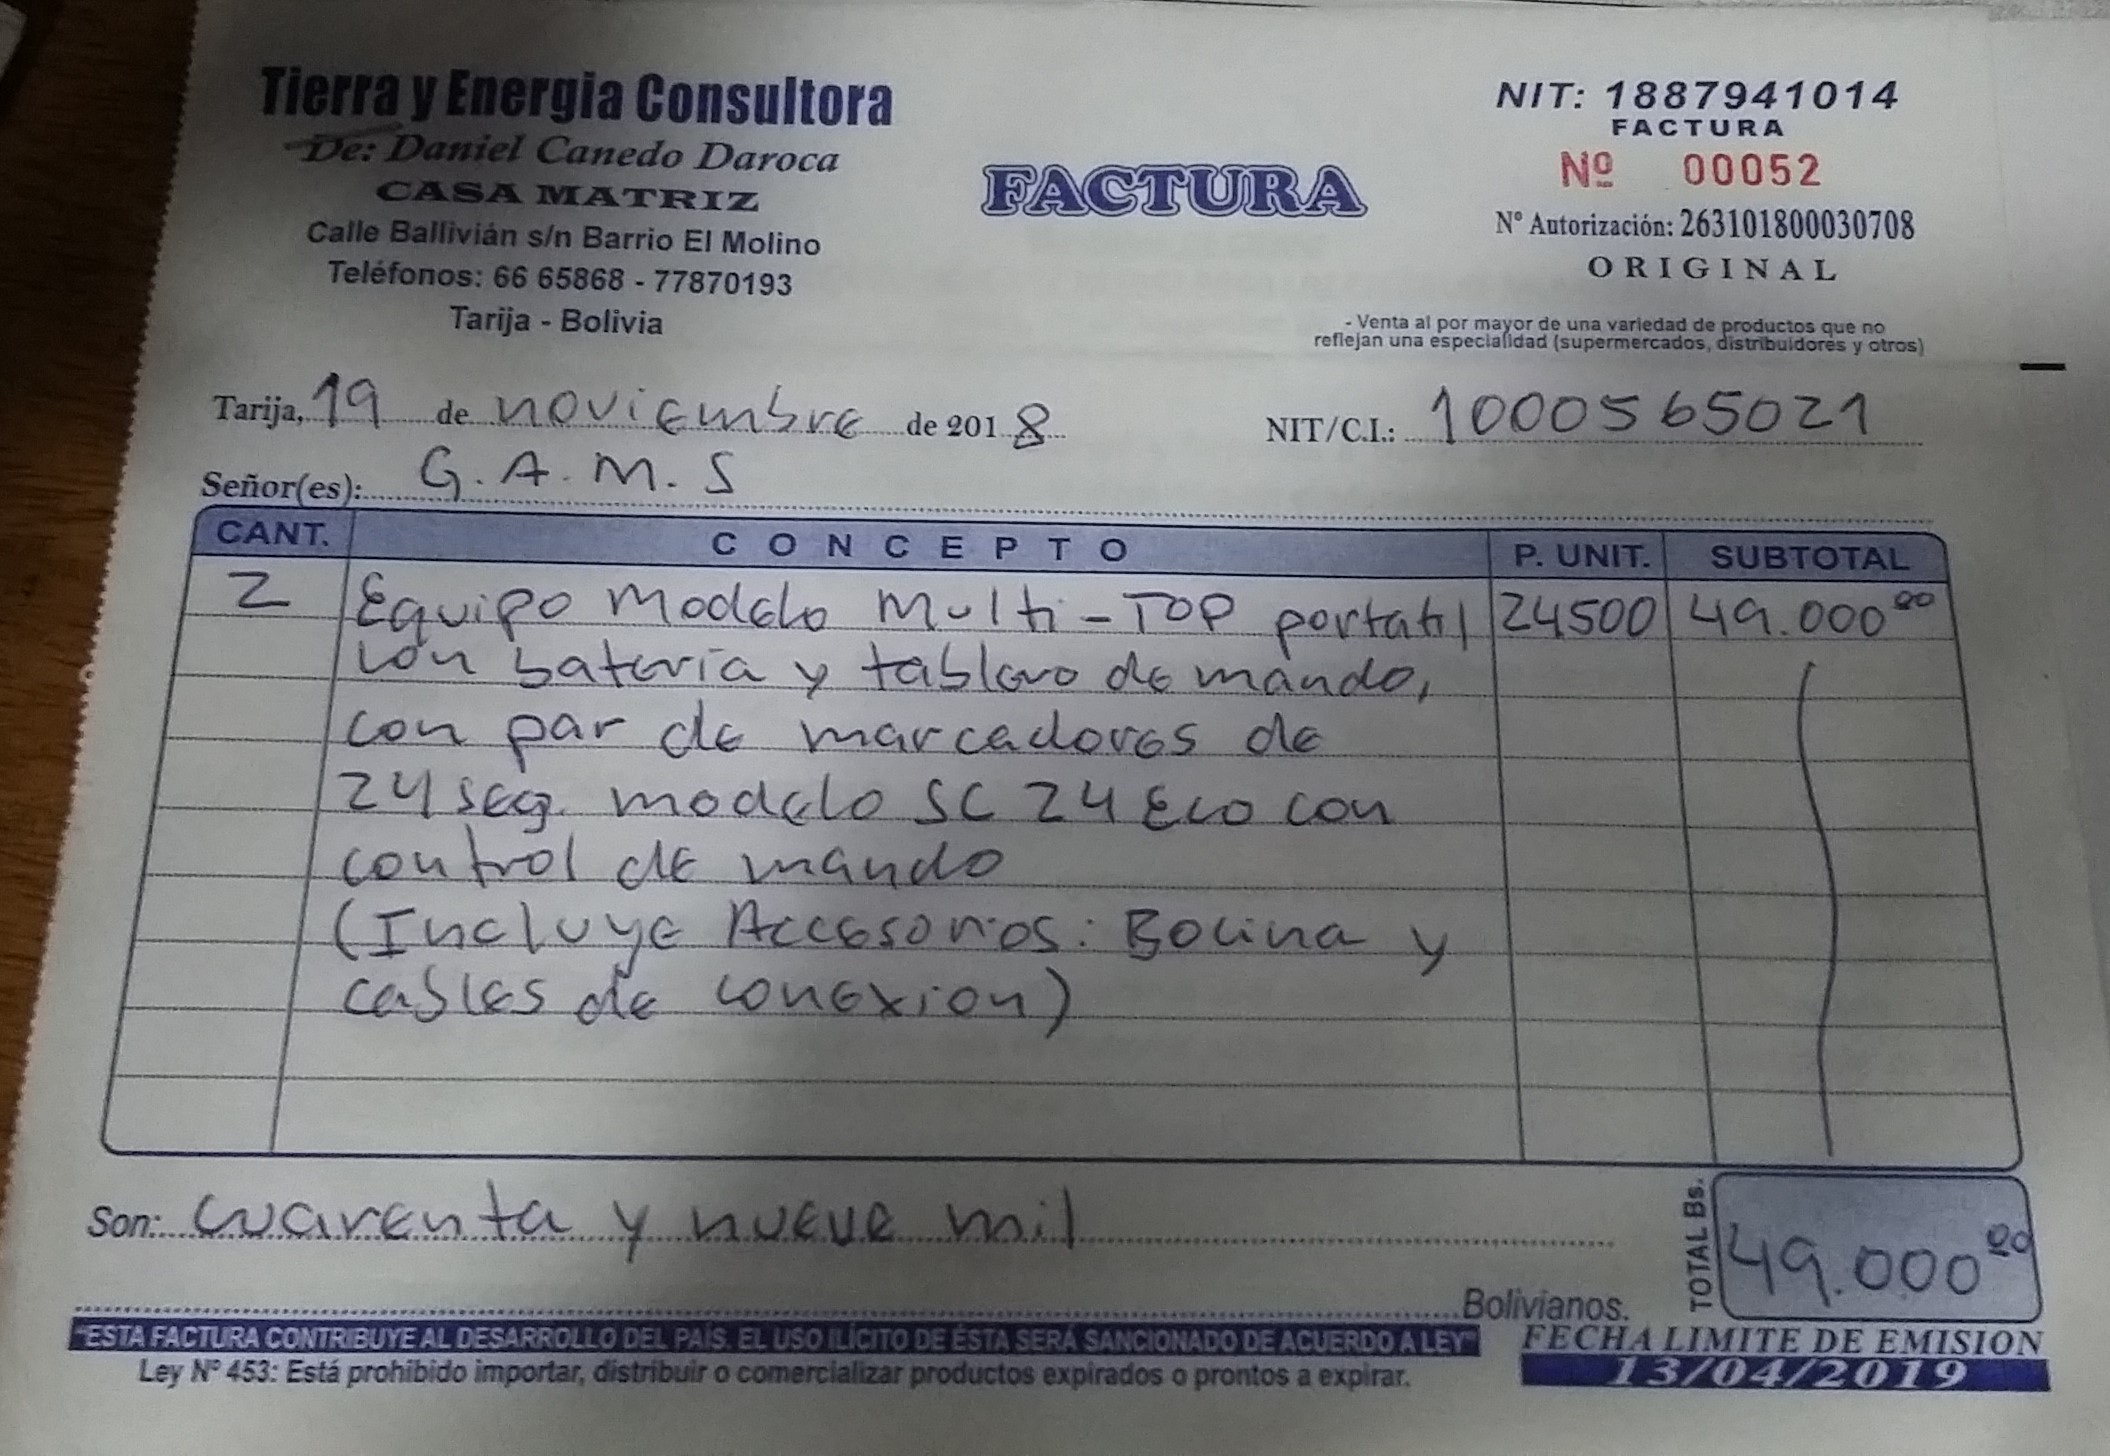 Tierra y Energia Consultora
De: Daniel Canedo Daroca
CASA MATRIZ
Calle Ballivián s/n Barrio El Molino
Teléfonos: 66 65868 - 77870193
Tarija - Bolivia
FACTURA
NIT: 1887941014
FACTURA
Nº 00052
Nº Autorización: 263101800030708
ORIGINAL
- Venta al por mayor de una variedad de productos que no
reflejan una especialidad (supermercados, distribuidores y otros)
Tarija, 19 de noviembre de 2018 NIT/C.I.: 1000565021
Señor(es): G.A.M.S
CANT. CONCEPTO P. UNIT. SUBTOTAL
2 Equipo Modelo Multi-TOP portatil 24500 49.000 00
con batería y tablero de mando,
con par de marcadores de
24 seg. modelo SC 24 Eco con
control de mando
(Incluye Accesorios: Bocina y
cables de conexion)
Son: cuarenta y nueve mil
Bolivianos.
TOTAL Bs. 49.000 00
"ESTA FACTURA CONTRIBUYE AL DESARROLLO DEL PAÍS. EL USO ILÍCITO DE ÉSTA SERÁ SANCIONADO DE ACUERDO A LEY"
Ley Nº 453: Está prohibido importar, distribuir o comercializar productos expirados o prontos a expirar.
FECHA LIMITE DE EMISION
13/04/2019